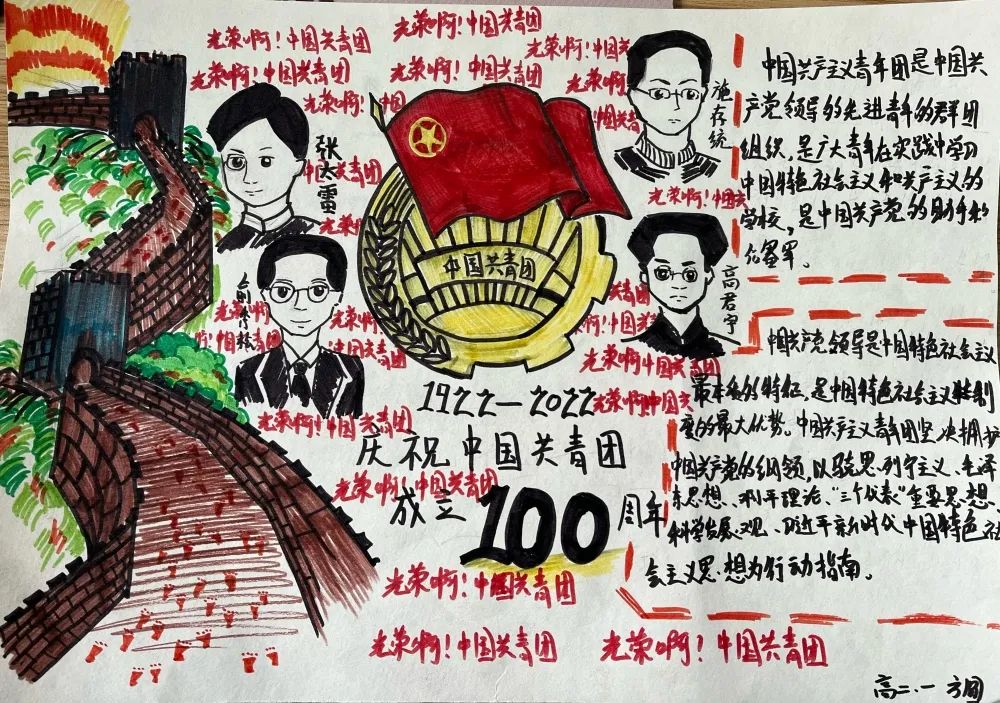 光荣啊！中国共青团
光荣啊！中国共青团
光荣啊！中国共
光荣啊！中国共青团
光荣啊！中国共青团
光荣
光荣啊！中国
中国共
张太雷
中国共青团
光荣
施存统
光荣啊！中国共
俞秀松
光荣啊
中国共青团
光荣啊
中国共青团
光荣啊！中国共青团
中国共青团
高君宇
共青团
啊！中国共青团
光荣啊！中国共青团
光荣啊！中国共
1922—2022
庆祝中国共青团
光荣啊！中国共青团
成立100周年
光荣啊！中国共青团
光荣啊！中国共青团
光荣啊！中国共青团
中国共产主义青年团是中国共
产党领导的先进青年的群团
组织，是广大青年在实践中学习
中国特色社会主义和共产主义的
学校，是中国共产党的助手和
后备军。
中国共产党领导是中国特色社会主义
最本质的特征，是中国特色社会主义制
度的最大优势。中国共产主义青年团坚决拥护
中国共产党的纲领，以马克思列宁主义、毛泽
东思想、邓小平理论、“三个代表”重要思想、
科学发展观、习近平新时代中国特色社
会主义思想为行动指南。
高二.一 方圆